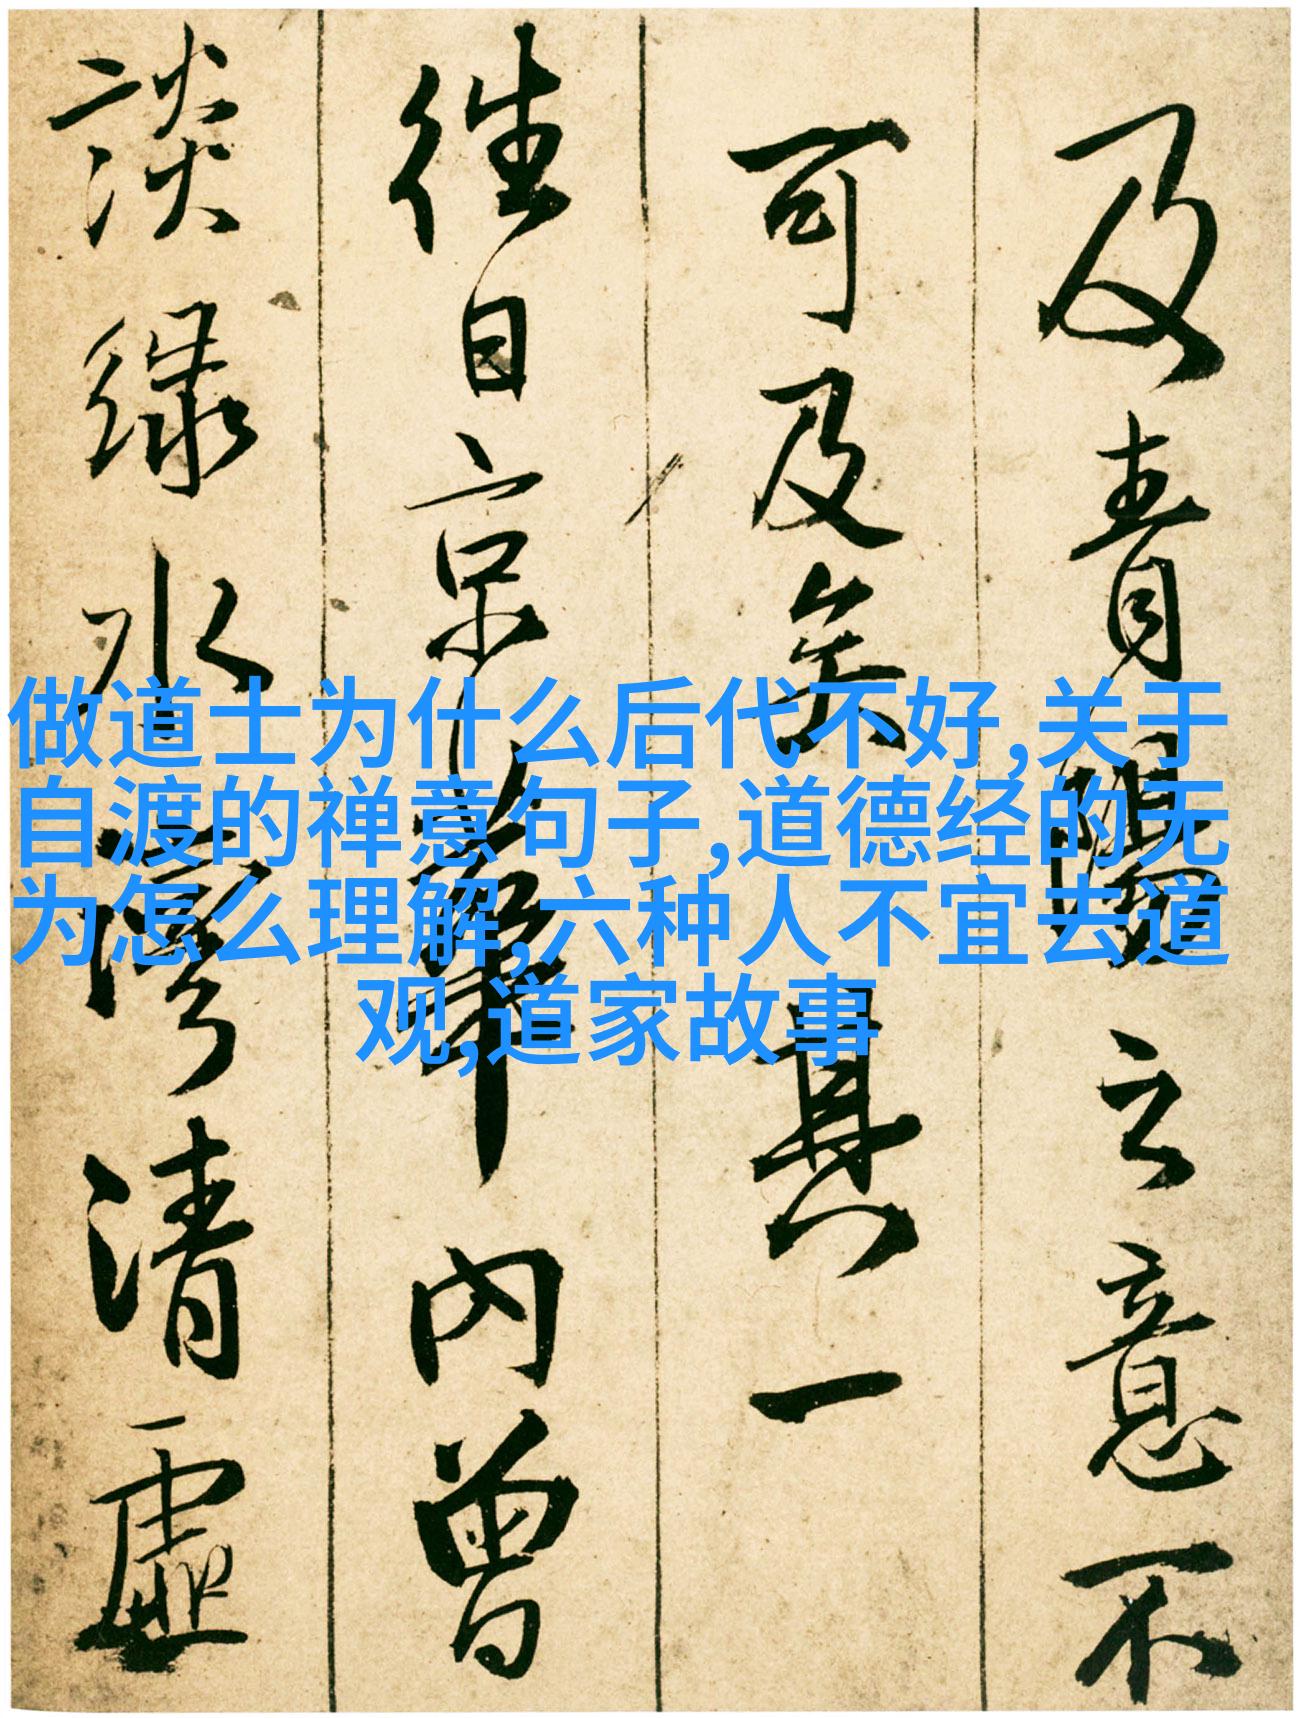 及青陽之意不
可及矣其一
往日京華內曾
談緑水灣清虛
做道士为什么后代不好,关于
自渡的禅意句子,道德经的无
为怎么理解,六种人不宜去道
观,道家故事